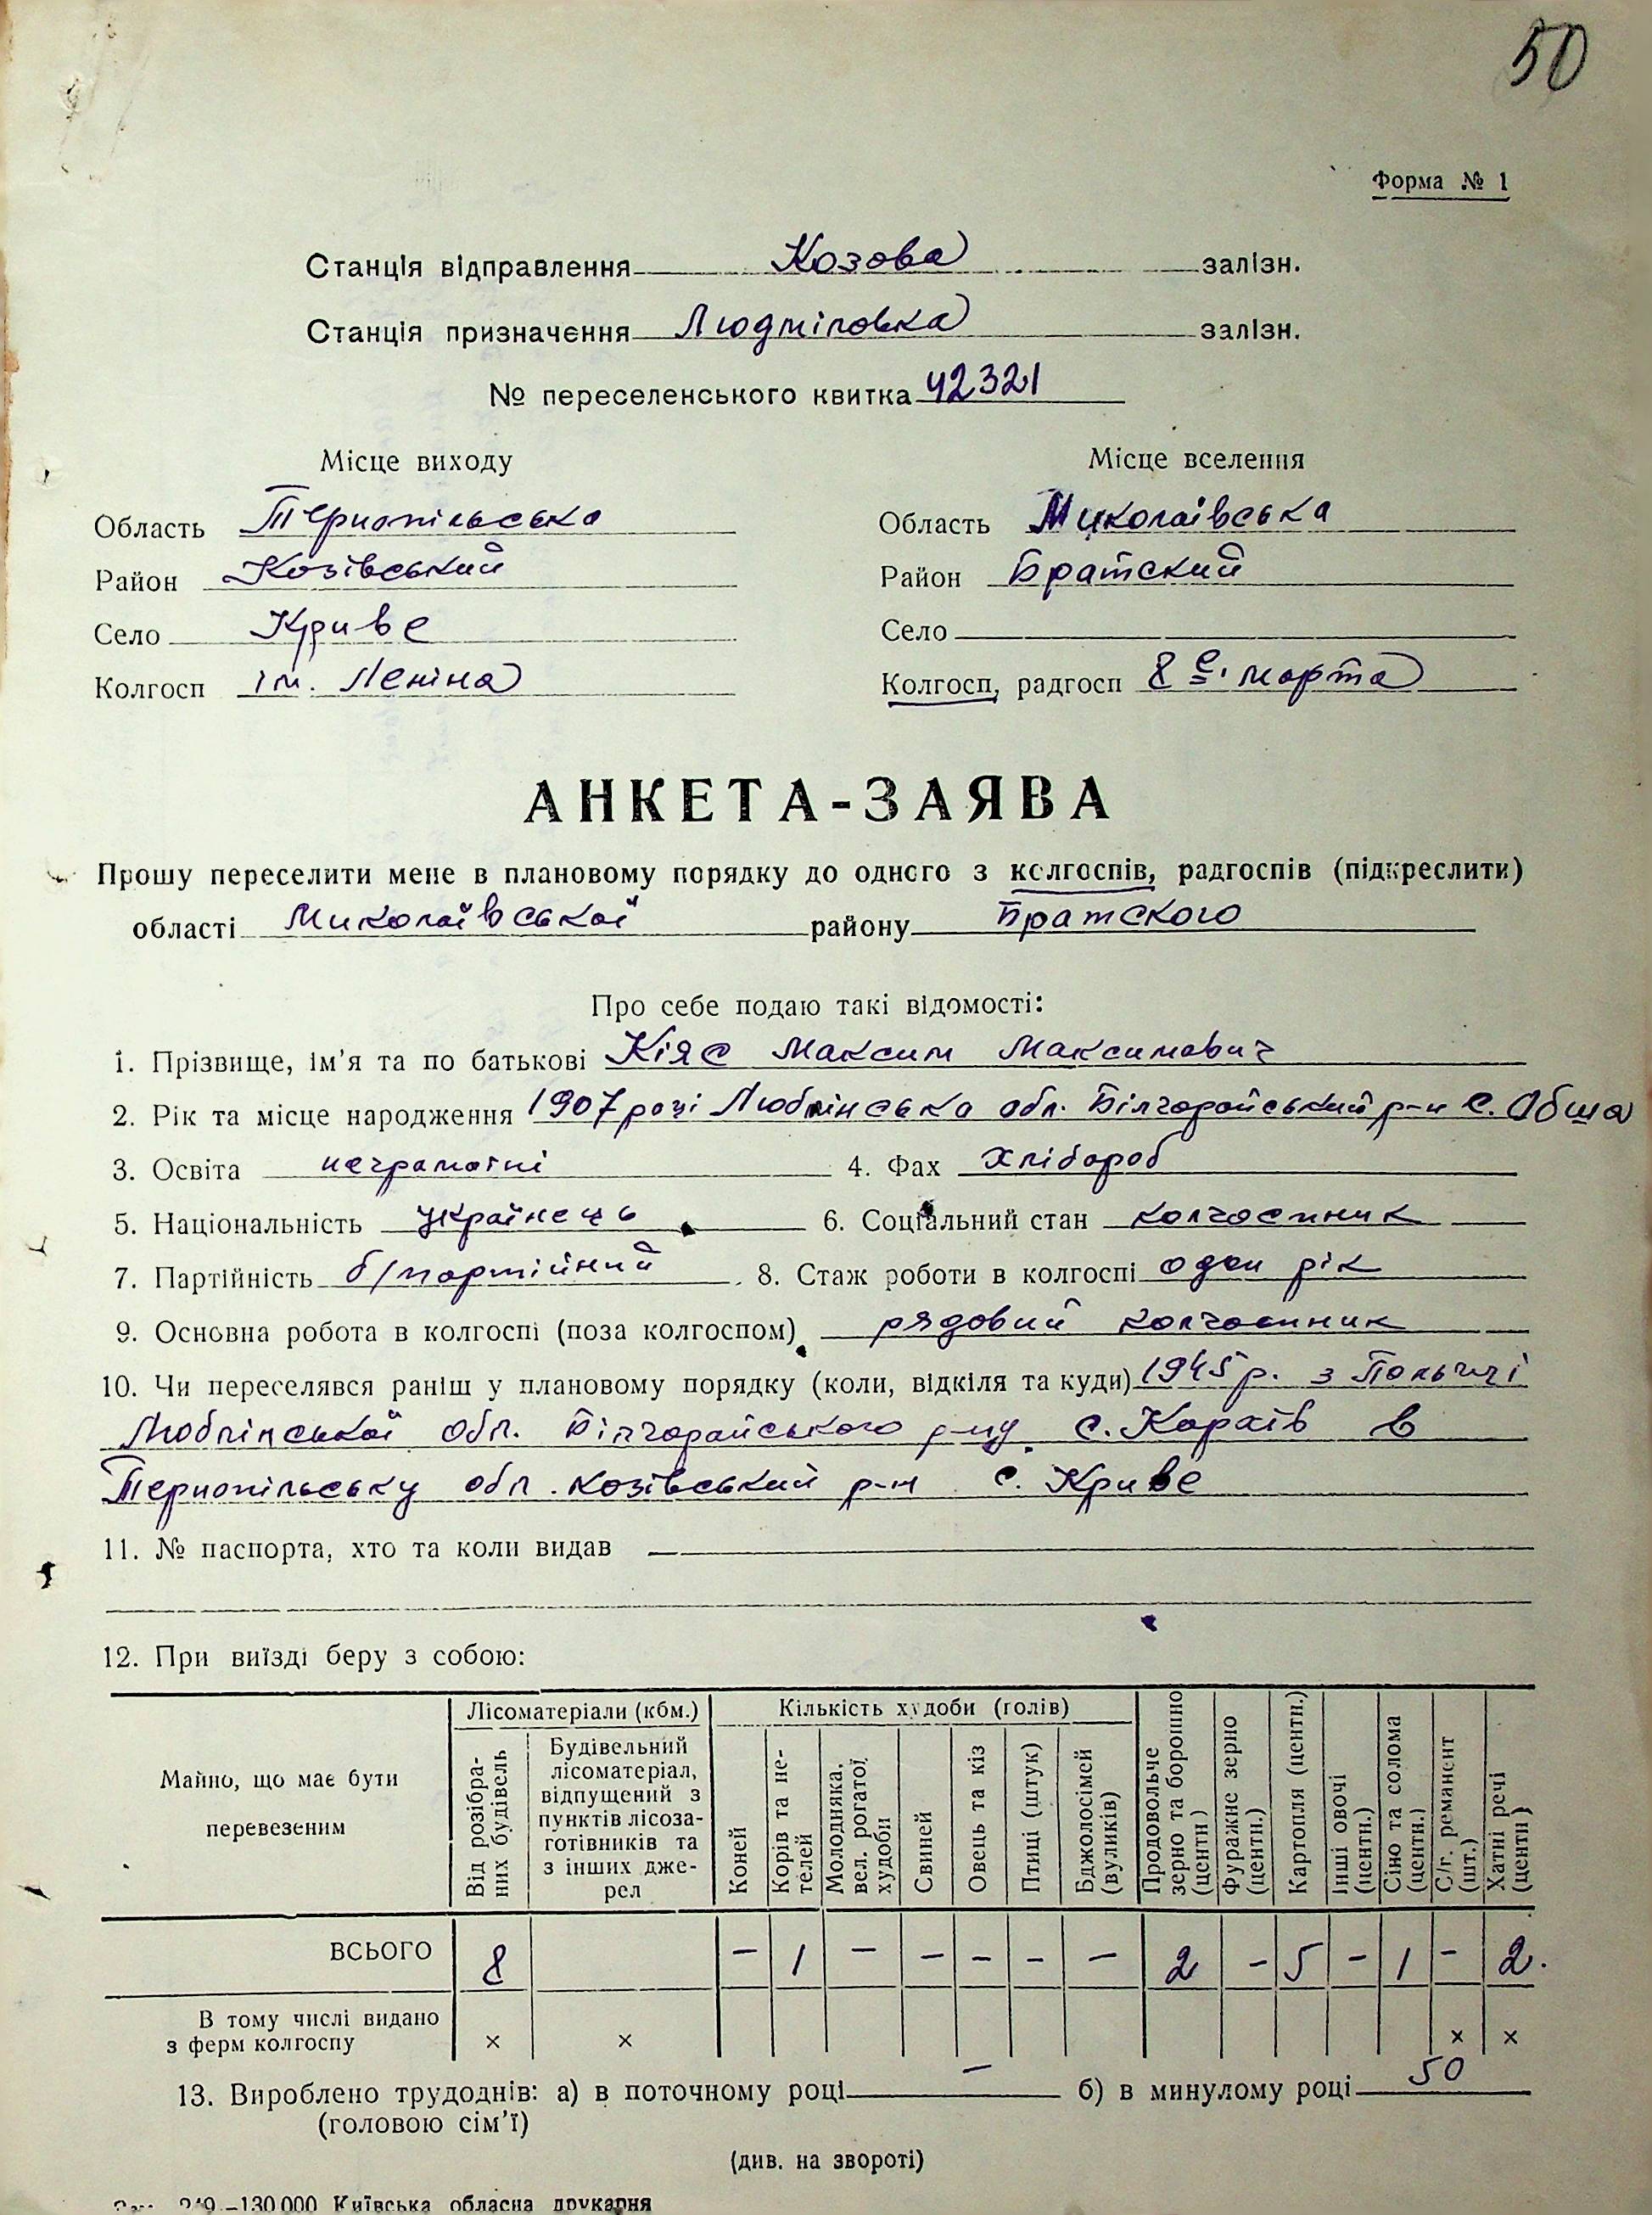 50
Форма № 1
Станція відправлення Козова залізн.
Станція призначення Людміловка залізн.
№ переселенського квитка 42321
Місце виходу Місце вселення
Область Тернопільська Область Миколаївська
Район Козівський Район Братский
Село Криве Село
Колгосп ім. Леніна Колгосп, радгосп 8 е. марта
АНКЕТА-ЗАЯВА
Прошу переселити мене в плановому порядку до одного з колгоспів, радгоспів (підкреслити)
області Миколаївської району Братского
Про себе подаю такі відомості:
1. Прізвище, ім'я та по батькові Кіяс Максим Максимович
2. Рік та місце народження 1907 році Люблінська обл. Білгорайський р-н с. Обша
3. Освіта неграмотні 4. Фах хлібороб
5. Національність українець 6. Соціальний стан колгоспник
7. Партійність б/партійний 8. Стаж роботи в колгоспі один рік
9. Основна робота в колгоспі (поза колгоспом) рядовий колгоспник
10. Чи переселявся раніш у плановому порядку (коли, відкіля та куди) 1945 р. з Польщі
Люблінської обл. Білгорайського р-ну с. Караїв в
Тернопільську обл. Козівський р-н с. Криве
11. № паспорта, хто та коли видав
12. При виїзді беру з собою:
Майно, що має бути перевезеним
Лісоматеріали (кбм.)
Від розібраних будівель
Будівельний лісоматеріал, відпущений з пунктів лісозаготівників та з інших джерел
Кількість худоби (голів)
Коней
Корів та нетелей
Молодняка, вел. рогатої худоби
Свиней
Овець та кіз
Птиці (штук)
Бджолосімей (вуликів)
Продовольче зерно та борошно (центн.)
Фуражне зерно (центн.)
Картопля (центн.)
Інші овочі (центн.)
Сіно та солома (центн.)
С/г. реманент (шт.)
Хатні речі (центн)
ВСЬОГО 8 – 1 – – – – – 2 – 5 – 1 – 2.
В тому числі видано
з ферм колгоспу × × × ×
13. Вироблено трудоднів: а) в поточному році – б) в минулому році 50
(головою сім'ї)
(див. на звороті)
249–130 000 Київська обласна друкарня